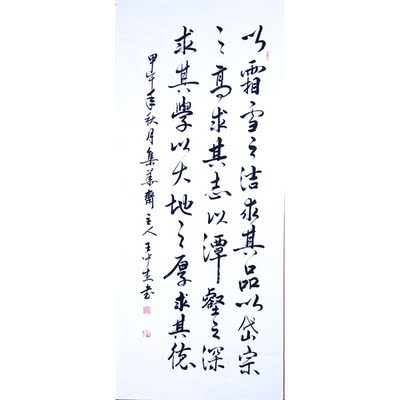 以霜雪之洁求其品以岱宗
之高求其志以潭壑之深
求其學以大地之厚求其德
甲午年秋月集慕齋主人王中杰书